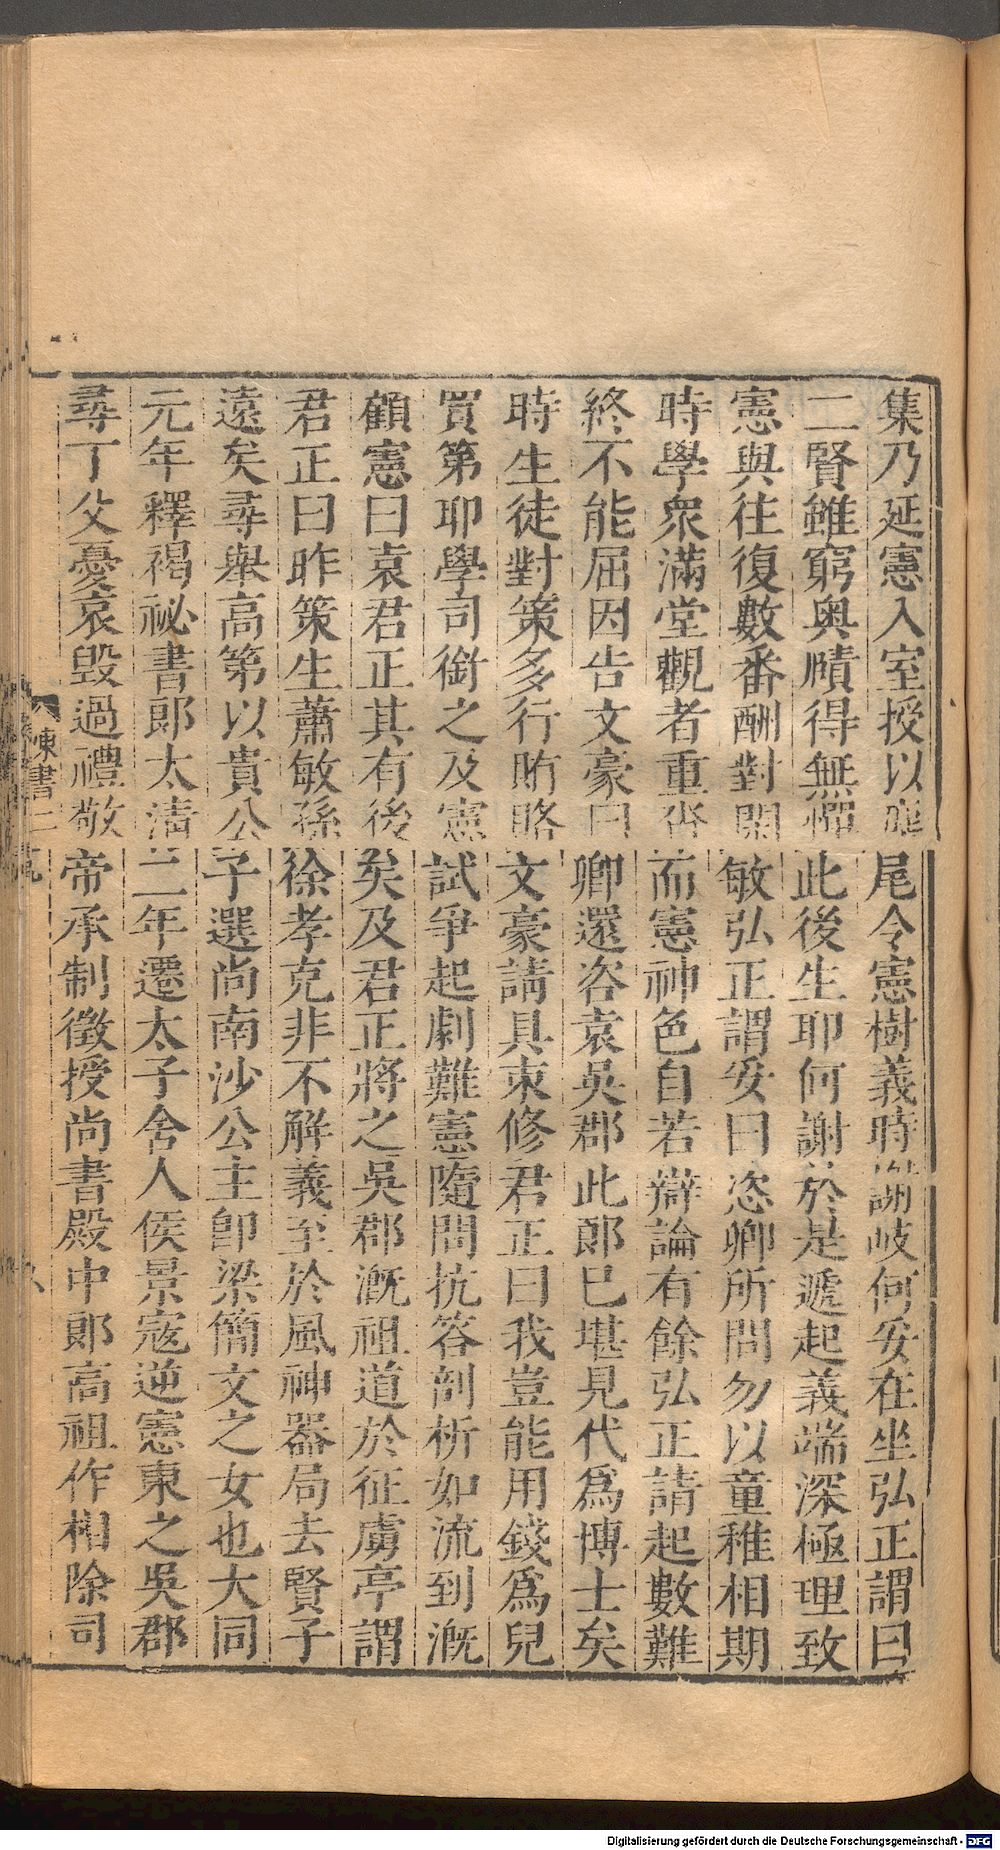 集乃延憲入室授以麈尾令憲樹義時謝岐何妥在坐弘正謂曰
二賢雖窮奧賾得無憚此後生耶何謝於是遞起義端深極理致
憲與往復數番酬對閑敏弘正謂妥曰恣卿所問勿以童稚相期
時學衆滿堂觀者重沓而憲神色自若辯論有餘弘正請起數難
終不能屈因告文豪曰卿還咨袁吳郡此郎已堪見代爲博士矣
時生徒對策多行賄賂文豪請具束修君正曰我豈能用錢爲兒
買第耶學司銜之及憲試爭起劇難憲隨問抗答剖析如流到漑
顧憲曰袁君正其有後矣及君正將之吳郡漑祖道於征虜亭謂
君正曰昨策生蕭敏孫徐孝克非不解義至於風神器局去賢子
遠矣尋舉高第以貴公子選尚南沙公主卽梁簡文之女也大同
元年釋褐祕書郎太淸二年遷太子舍人侯景寇逆憲東之吳郡
尋丁父憂哀毀過禮敬帝承制徵授尚書殿中郎高祖作相除司
陳書二
Digitalisierung gefördert durch die Deutsche Forschungsgemeinschaft - DFG